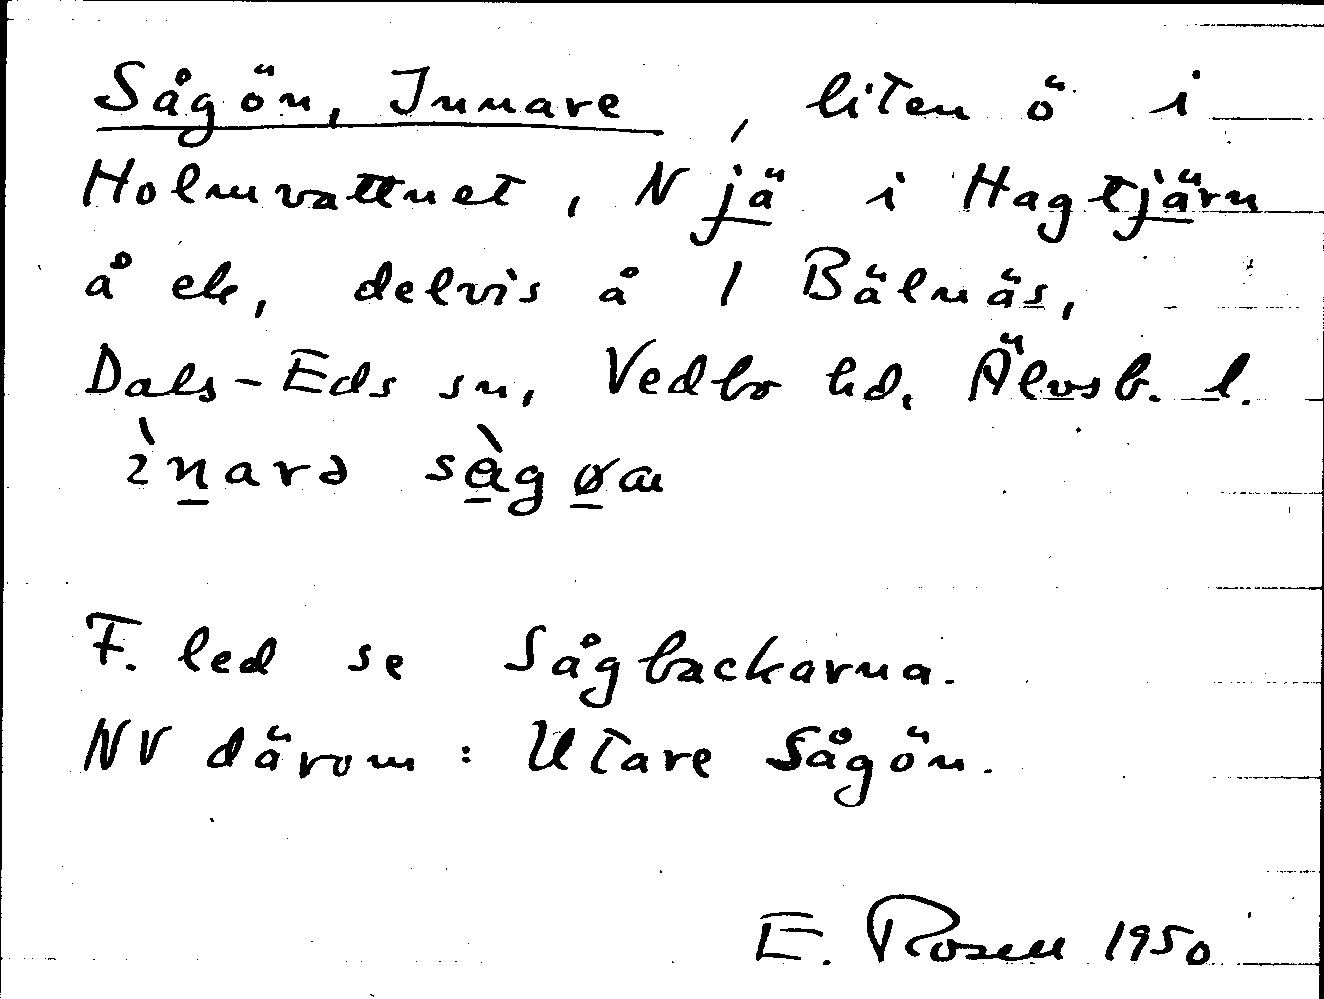 Sågön, Innare, liten ö i
Holmvattnet, N jä i Hagtjärn
å ek, delvis å 1 Bälnäs,
Dals-Eds sn, Vedbo hd, Älvsb. l.
ìnarə sàgøn
F. led se Sågbackarna.
NV därom: Utare Sågön.
E. Rosell 1950